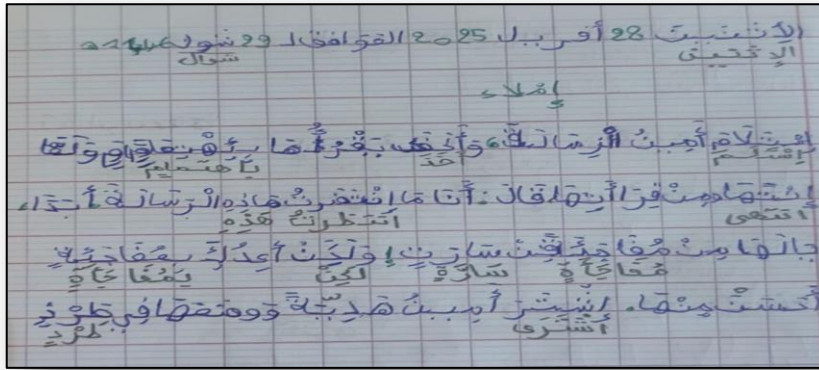 الإثنين 28 أفريل 2025 الموافق لـ 29 شوله 1446 هـ
الإثنين شوال
إملاء
إستلامَ أمينُ الرسالةَ، وَأَخَضَ يَقْرَؤُهَا بِإهْتِمَامٍ وَلَمَّا
إستلم أخذ بإهتمام
إنْتَهَا مِنْ قِرَاأَتِهَا قَالَ: أَنَا مَا انْتَضَرتُ هَاذِهِ الْرِسَالَةَ أَبَدًا،
انتهى انتظرتُ هَذِهِ
مِنْ سَارَتٍ! وَلَكِنْ أَعِدُكَ
مفاجأة سارّةٍ لكنّ بمفاجأة
أَحْسَنْ مِنْهَا. إشْتَرَ أَمِينُ هَدِيّةً وَوضعَهَا فِي طَرْدٍ
اشترى طرد